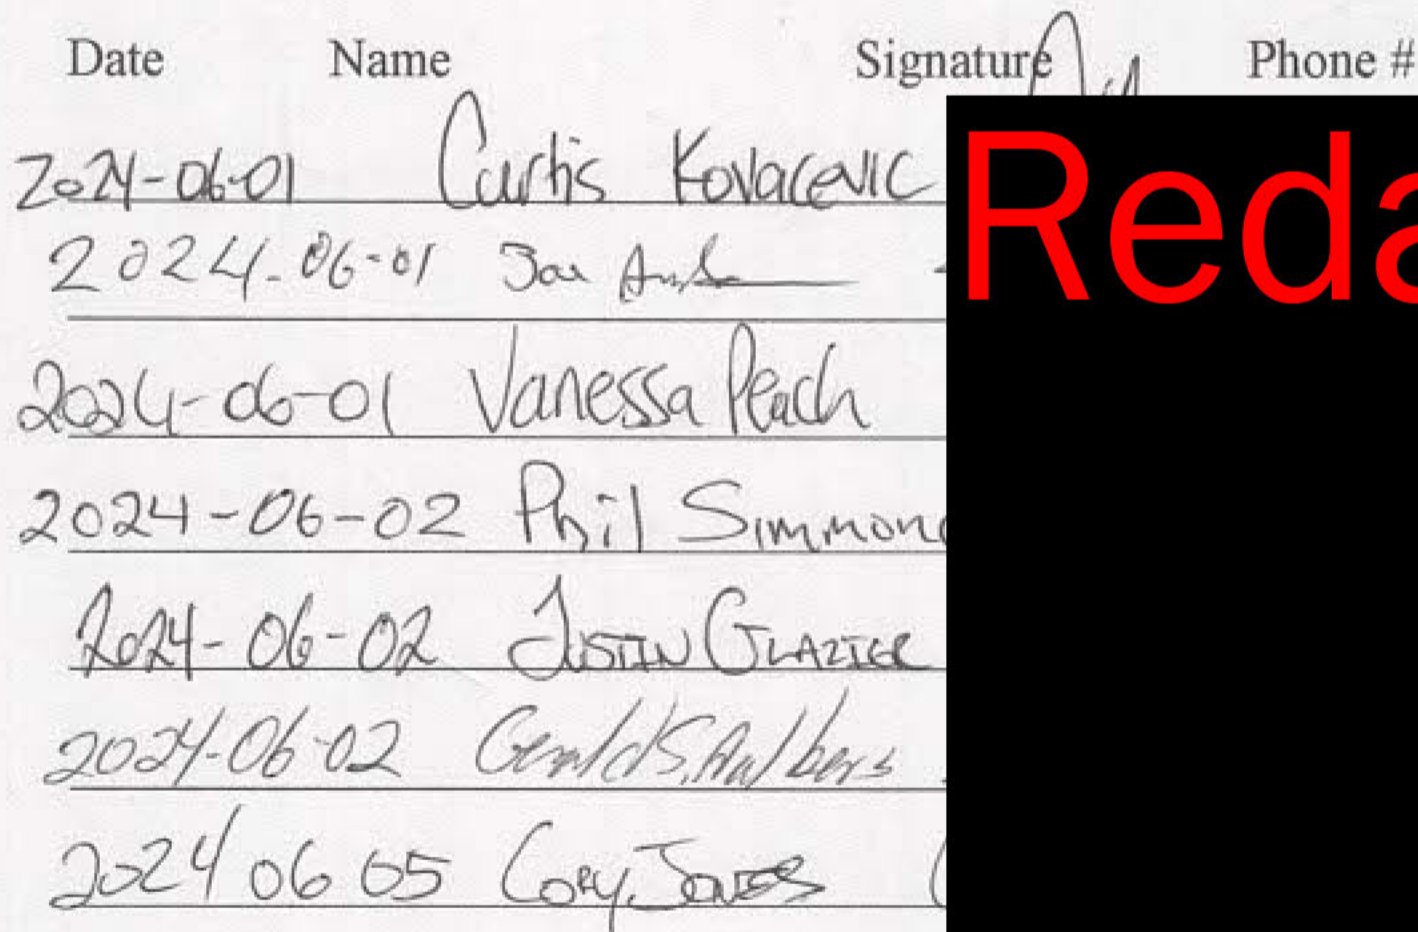 Date Name Signature Phone #
2024-06-01 Curtis Kovacevic
Reda
2024-06-01
2024-06-01 Vanessa Peach
2024-06-02 Phil Simmon
2024-06-02 Justin Glazier
2024-06-02 Gerald S.
2024 06 05 Cory Jones